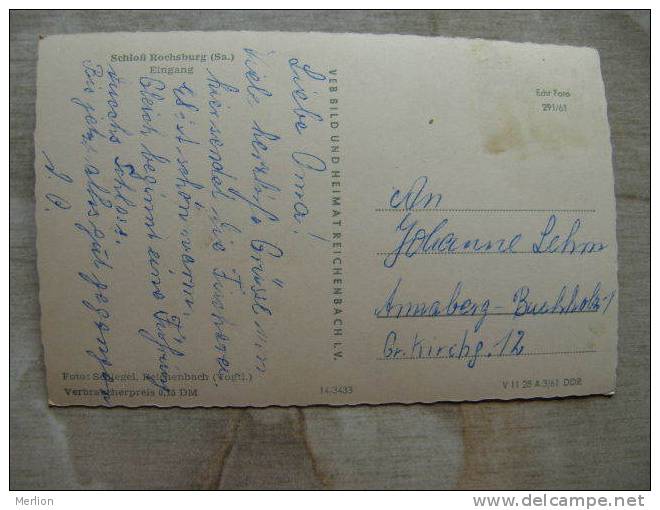 Schloß Rochsburg (Sa.)
Eingang
Liebe Oma!
Viele herzliche Grüße
hier sendet die
Es ist schön warm.
Gleich beginnt eine
durchs Schloss.
Bis jetzt alles gut gegangen
Foto: Schlegel, Reichenbach (Vogtl.)
Verbraucherpreis 0,15 DM
VEB BILD UND HEIMAT REICHENBACH I. V.
14/3433
Echt Foto
291/61
An
Johanne Lehm
Annaberg-Buchholz 1
Gr. Kirchg. 12
V 11 28 A 3/61 DDR
Merlion
http://www.delcampe.net